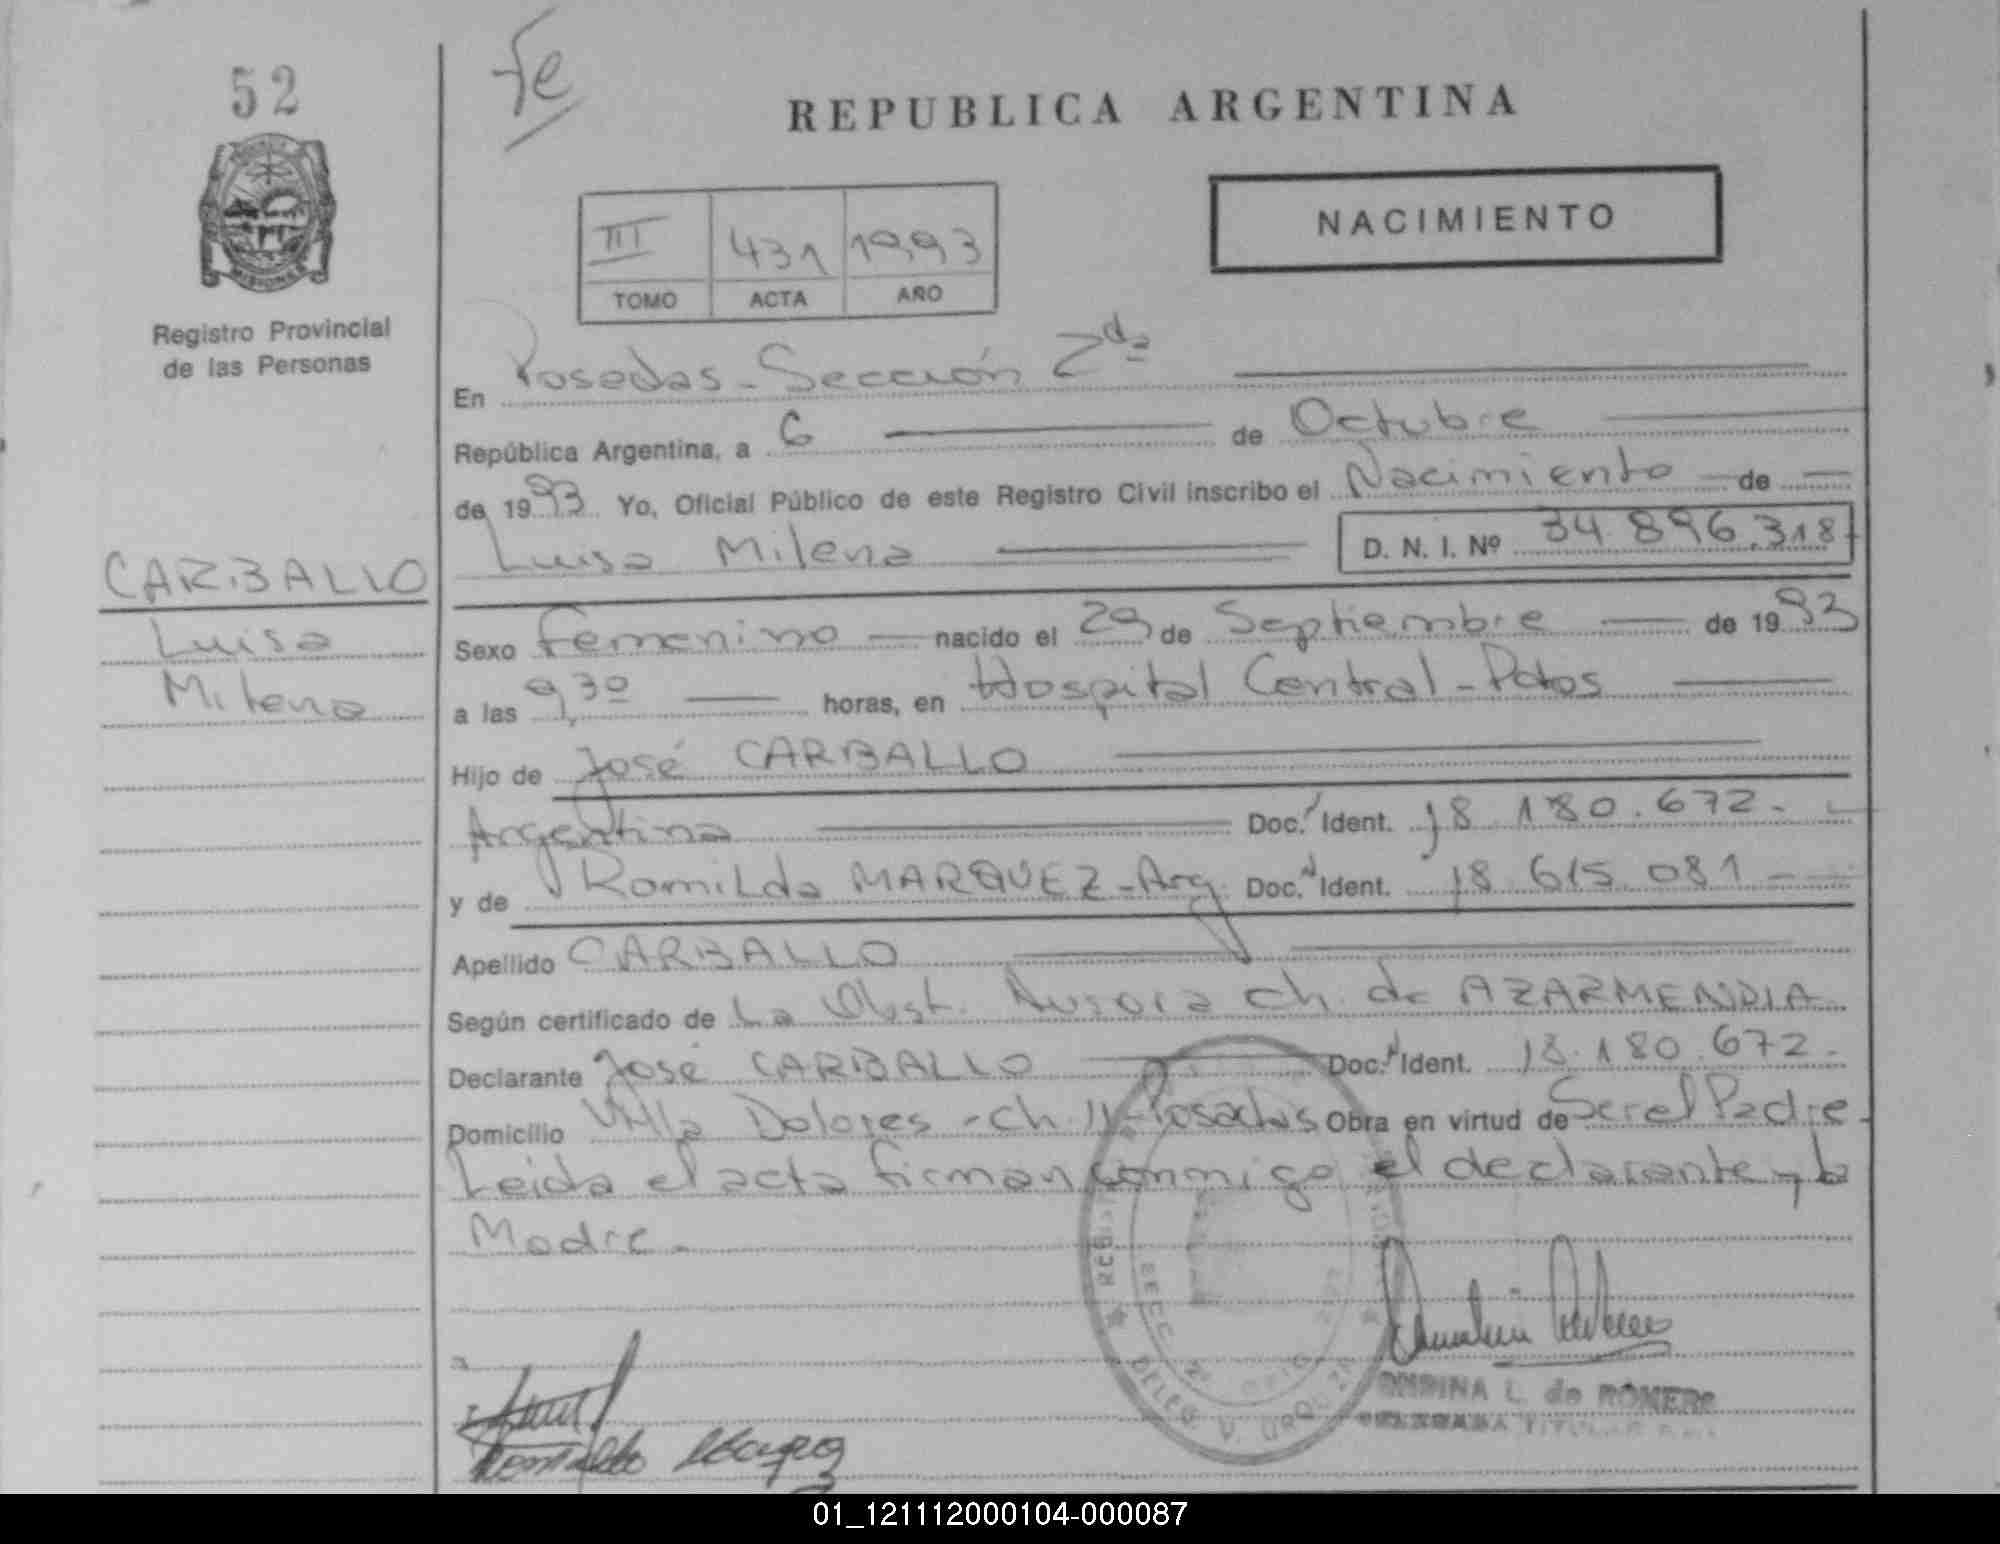 52
fe
REPUBLICA ARGENTINA
NACIMIENTO
III 431 1993
TOMO ACTA AÑO
Registro Provincial
de las Personas
En Posadas - Sección 2da
República Argentina, a 6 de Octubre
de 1993 Yo, Oficial Público de este Registro Civil inscribo el Nacimiento de
Luisa Milena D. N. I. Nº 34.896.318
CARBALLO
Luisa
Milena
Sexo Femenino nacido el 29 de Septiembre de 1993
a las 9,30 horas, en Hospital Central - Pdas
Hijo de José CARBALLO
Argentina Doc. Ident. 18.180.672.-
y de Romilda MARQUEZ - Arg. Doc. Ident. 18.615.081 -
Apellido CARBALLO
Según certificado de La Obst. Aurora Ch. de AZARMENDIA
Declarante José CARBALLO Doc. Ident. 18.180.672.-
Domicilio Villa Dolores - Ch. 11 - Posadas Obra en virtud de Ser el Padre -
Leida el acta firman conmigo el declarante y la
Madre -
SECC. 2
DELEG. V. URQUIZA
L. de ROMERO
TITULAR
01_121112000104-000087